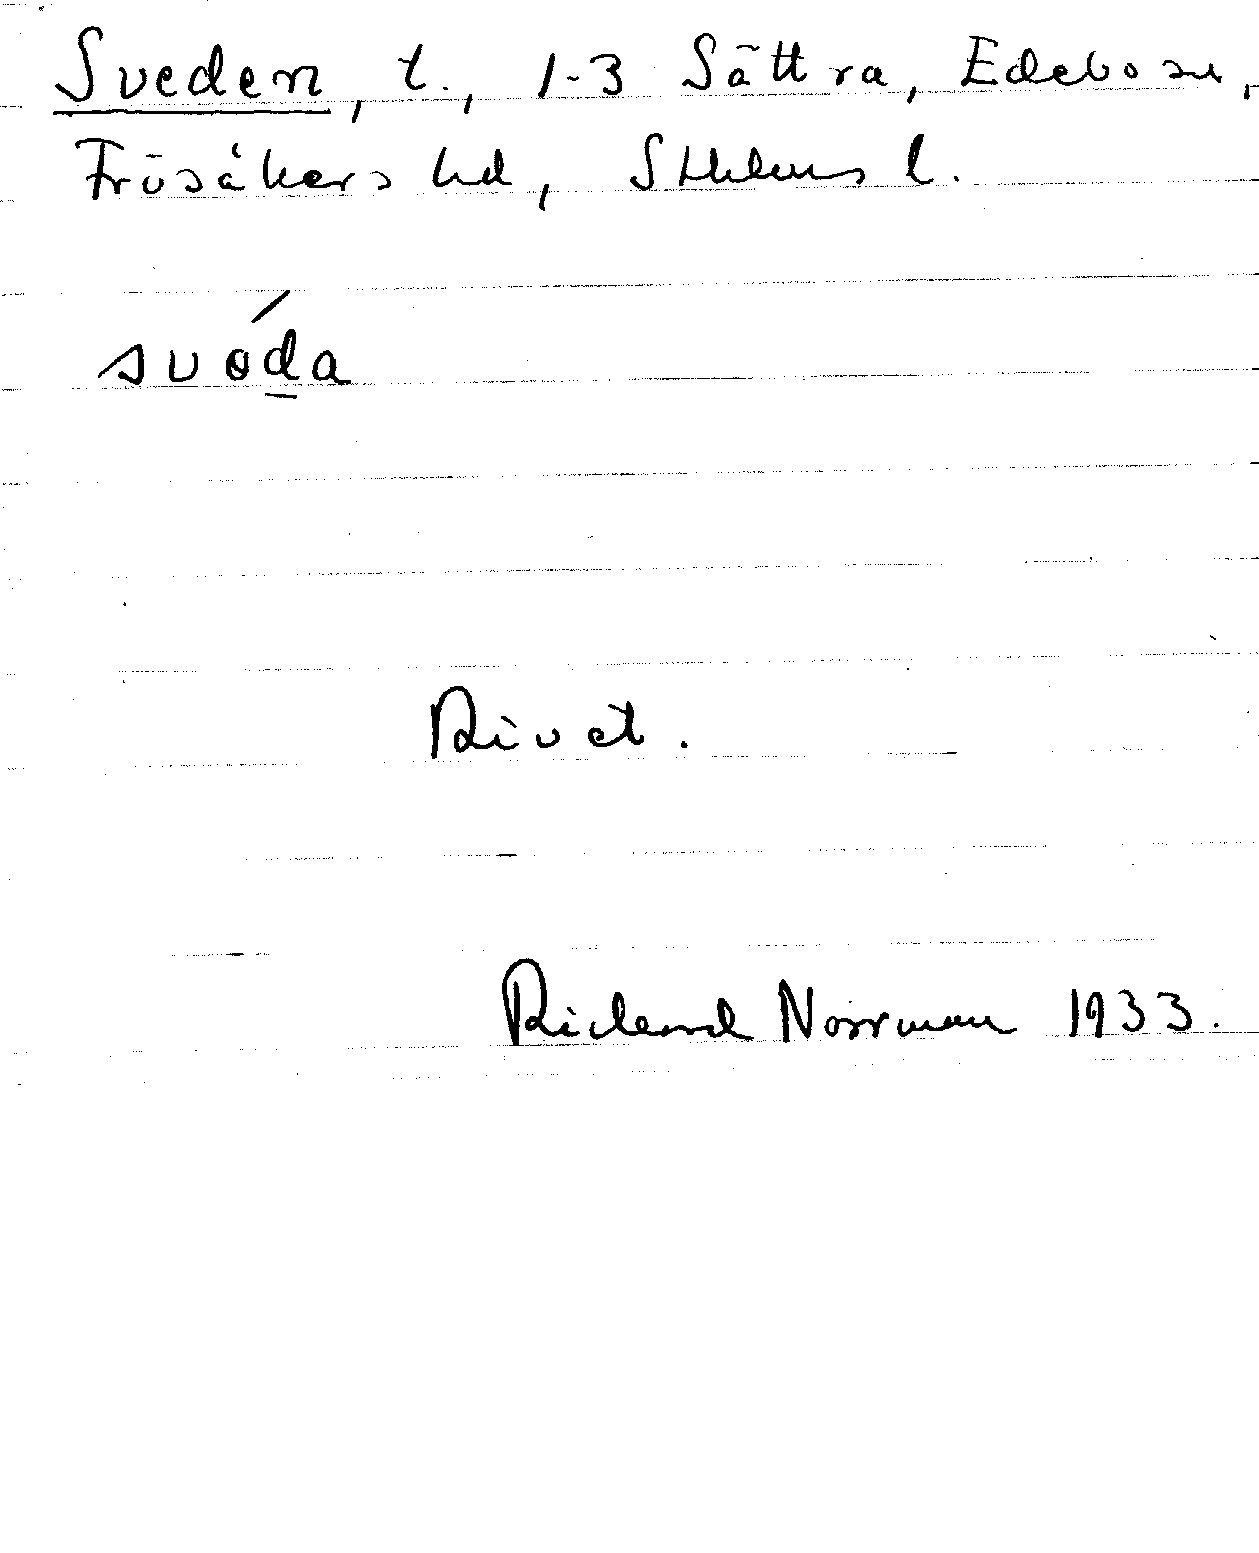 Sveden, t., 1-3 Sättra, Edebo sn,
Frösåkers hd, Sthlms l.
svǿda
Rivet.
Richard Norrman 1933.